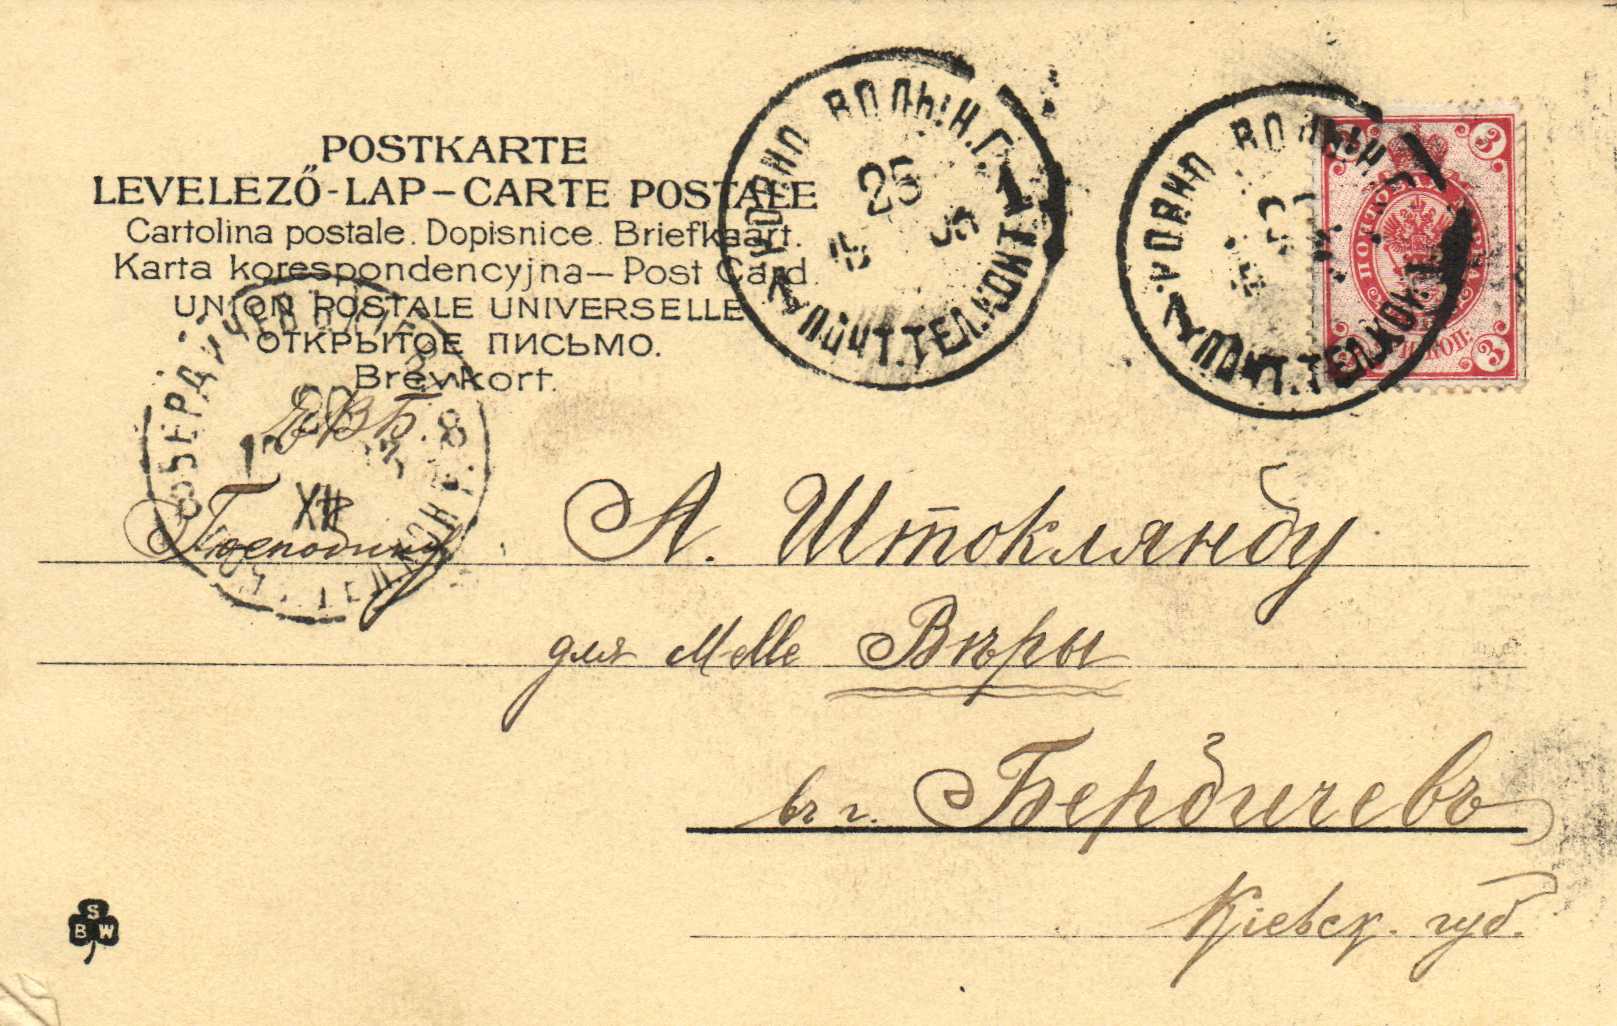 POSTKARTE
LEVELEZŐ-LAP-CARTE POSTALE
Cartolina postale. Dopisnice. Briefkaart.
Karta korespondencyjna—Post Card.
UNION POSTALE UNIVERSELLE
ОТКРЫТОЕ ПИСЬМО.
Brevkort.
РОВНО ВОЛЫН.Г.
25
1
ПОЧТ.ТЕЛ.КОНТ.
РОВНО ВОЛЫН. Г.
ПОЧТ.ТЕЛ.КОНТ.
3
3
3
БЕРДИЧЕВЪ
8
XII
ЕВБ.
Господину А. Штоклянду
для M-elle Вѣры
въ г. Бердичевъ
Кіевск. губ.
S
B W